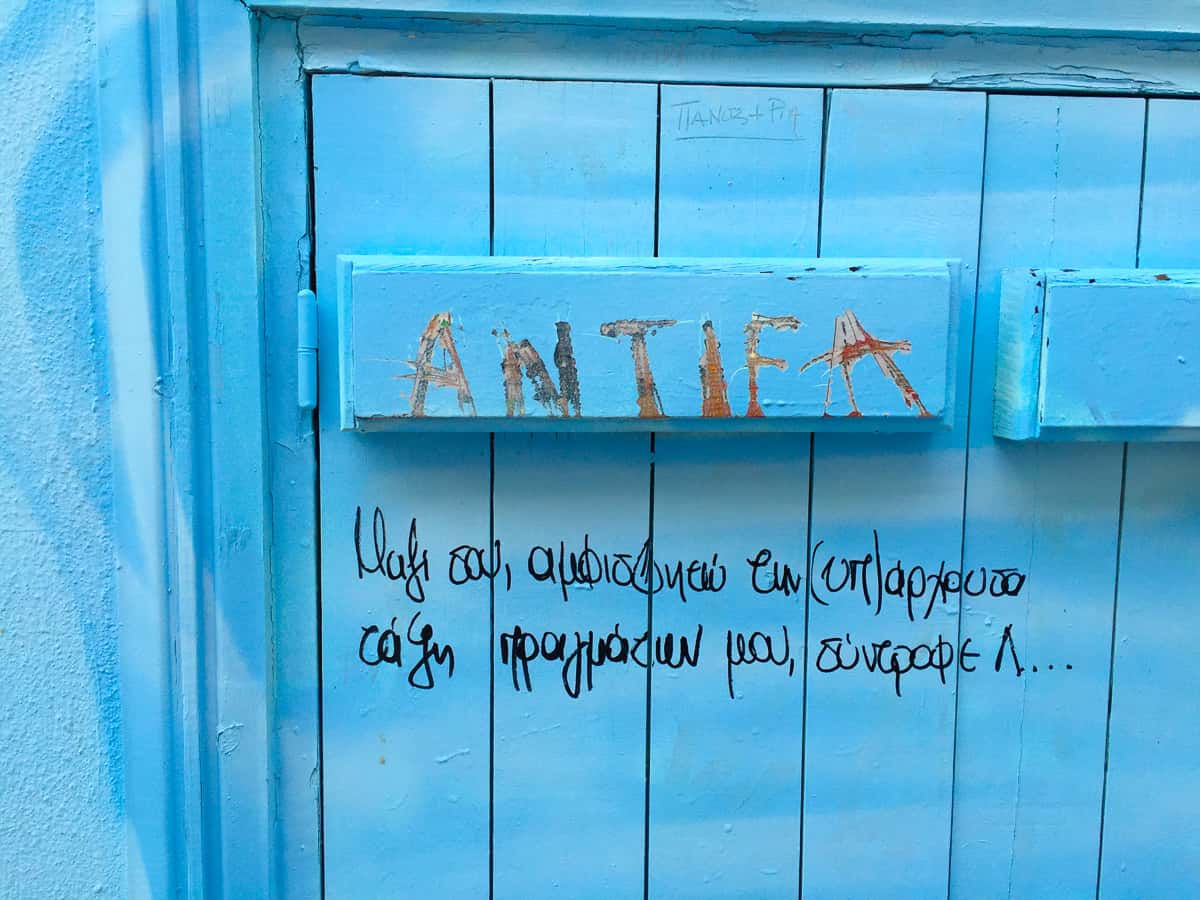 ΠΑΝΟΣ + ΡΙΑ
ANTIFA
Μαζί σου, αμφισβητώ την (υπ)άρχουσα
τάξη πραγμάτων μου, σύντροφε Λ...